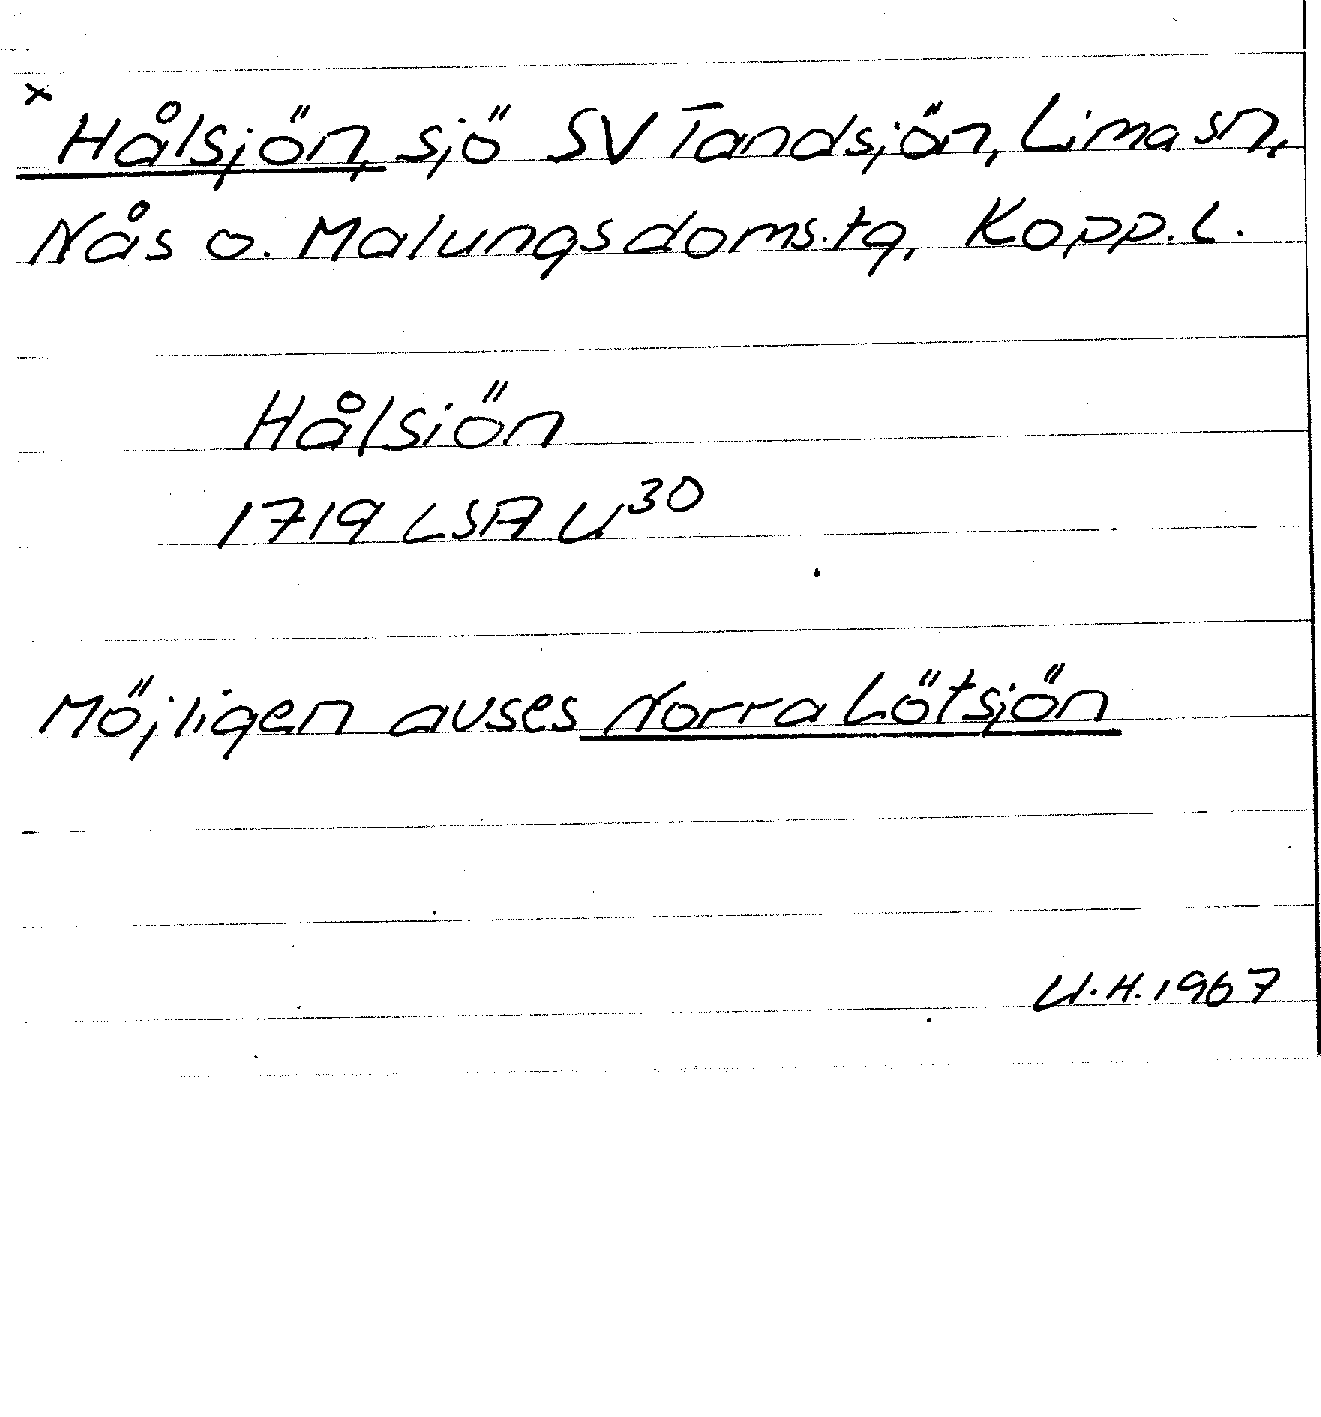 x Hålsjön, sjö SV Tandsjön, Lima sn,
Nås o. Malungs doms.tg, Kopp.l.
Hålsiön
1719 LSA U30
Möjligen avses Norra Lötsjön
U.H.1967